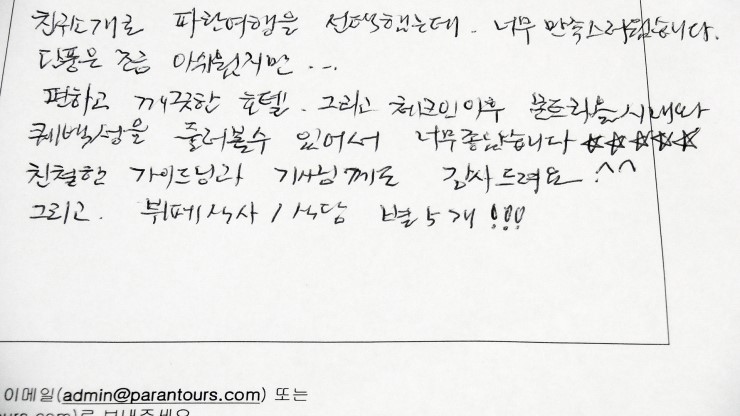 친구소개로 파란여행을 선택했는데. 너무 만족스러웠습니다.
단풍은 조금 아쉬웠지만 ...
편하고 깨끗한 호텔. 그리고 체크인이후 몬트리올시내와
퀘벡성을 둘러볼수 있어서 너무좋았습니다 ☆☆☆☆☆
친절한 가이드님과 기사님께도 감사드려요 ^^
그리고. 뷔페식사/식당 별5개!!!
이메일(admin@parantours.com) 또는
ours.com)로 보내주세요